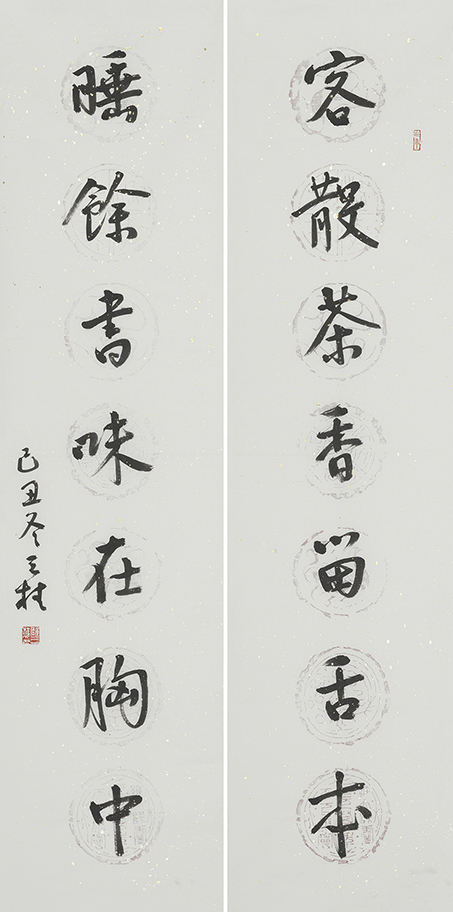 客散茶香留舌本
睡餘書味在胸中
己丑冬三柱